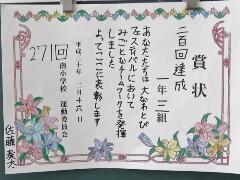 賞状
二百回達成
一年三組
あなたたちは大なわとび
フェスティバルにおいて
みごとなチームワークを発揮
しました
よってここに表彰します
平成二十年二月十六日
南小学校 運動委員会
271回
佐藤